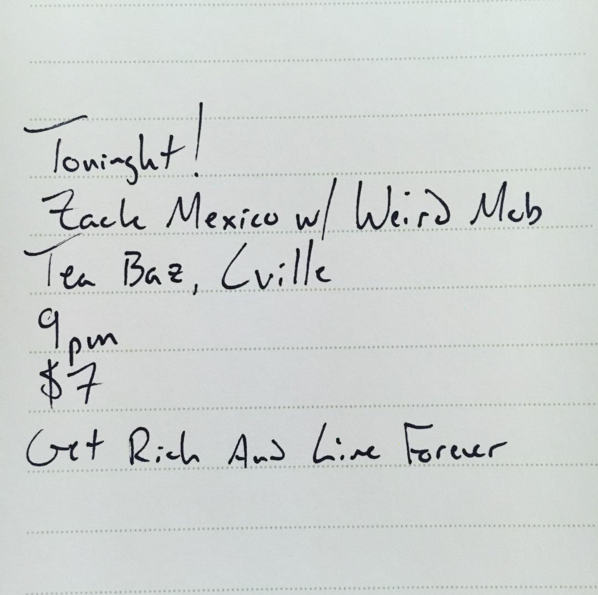 Tonight!
Zack Mexico w/ Weird Mob
Tea Baz, Cville
9pm
$7
Get Rich And Live Forever